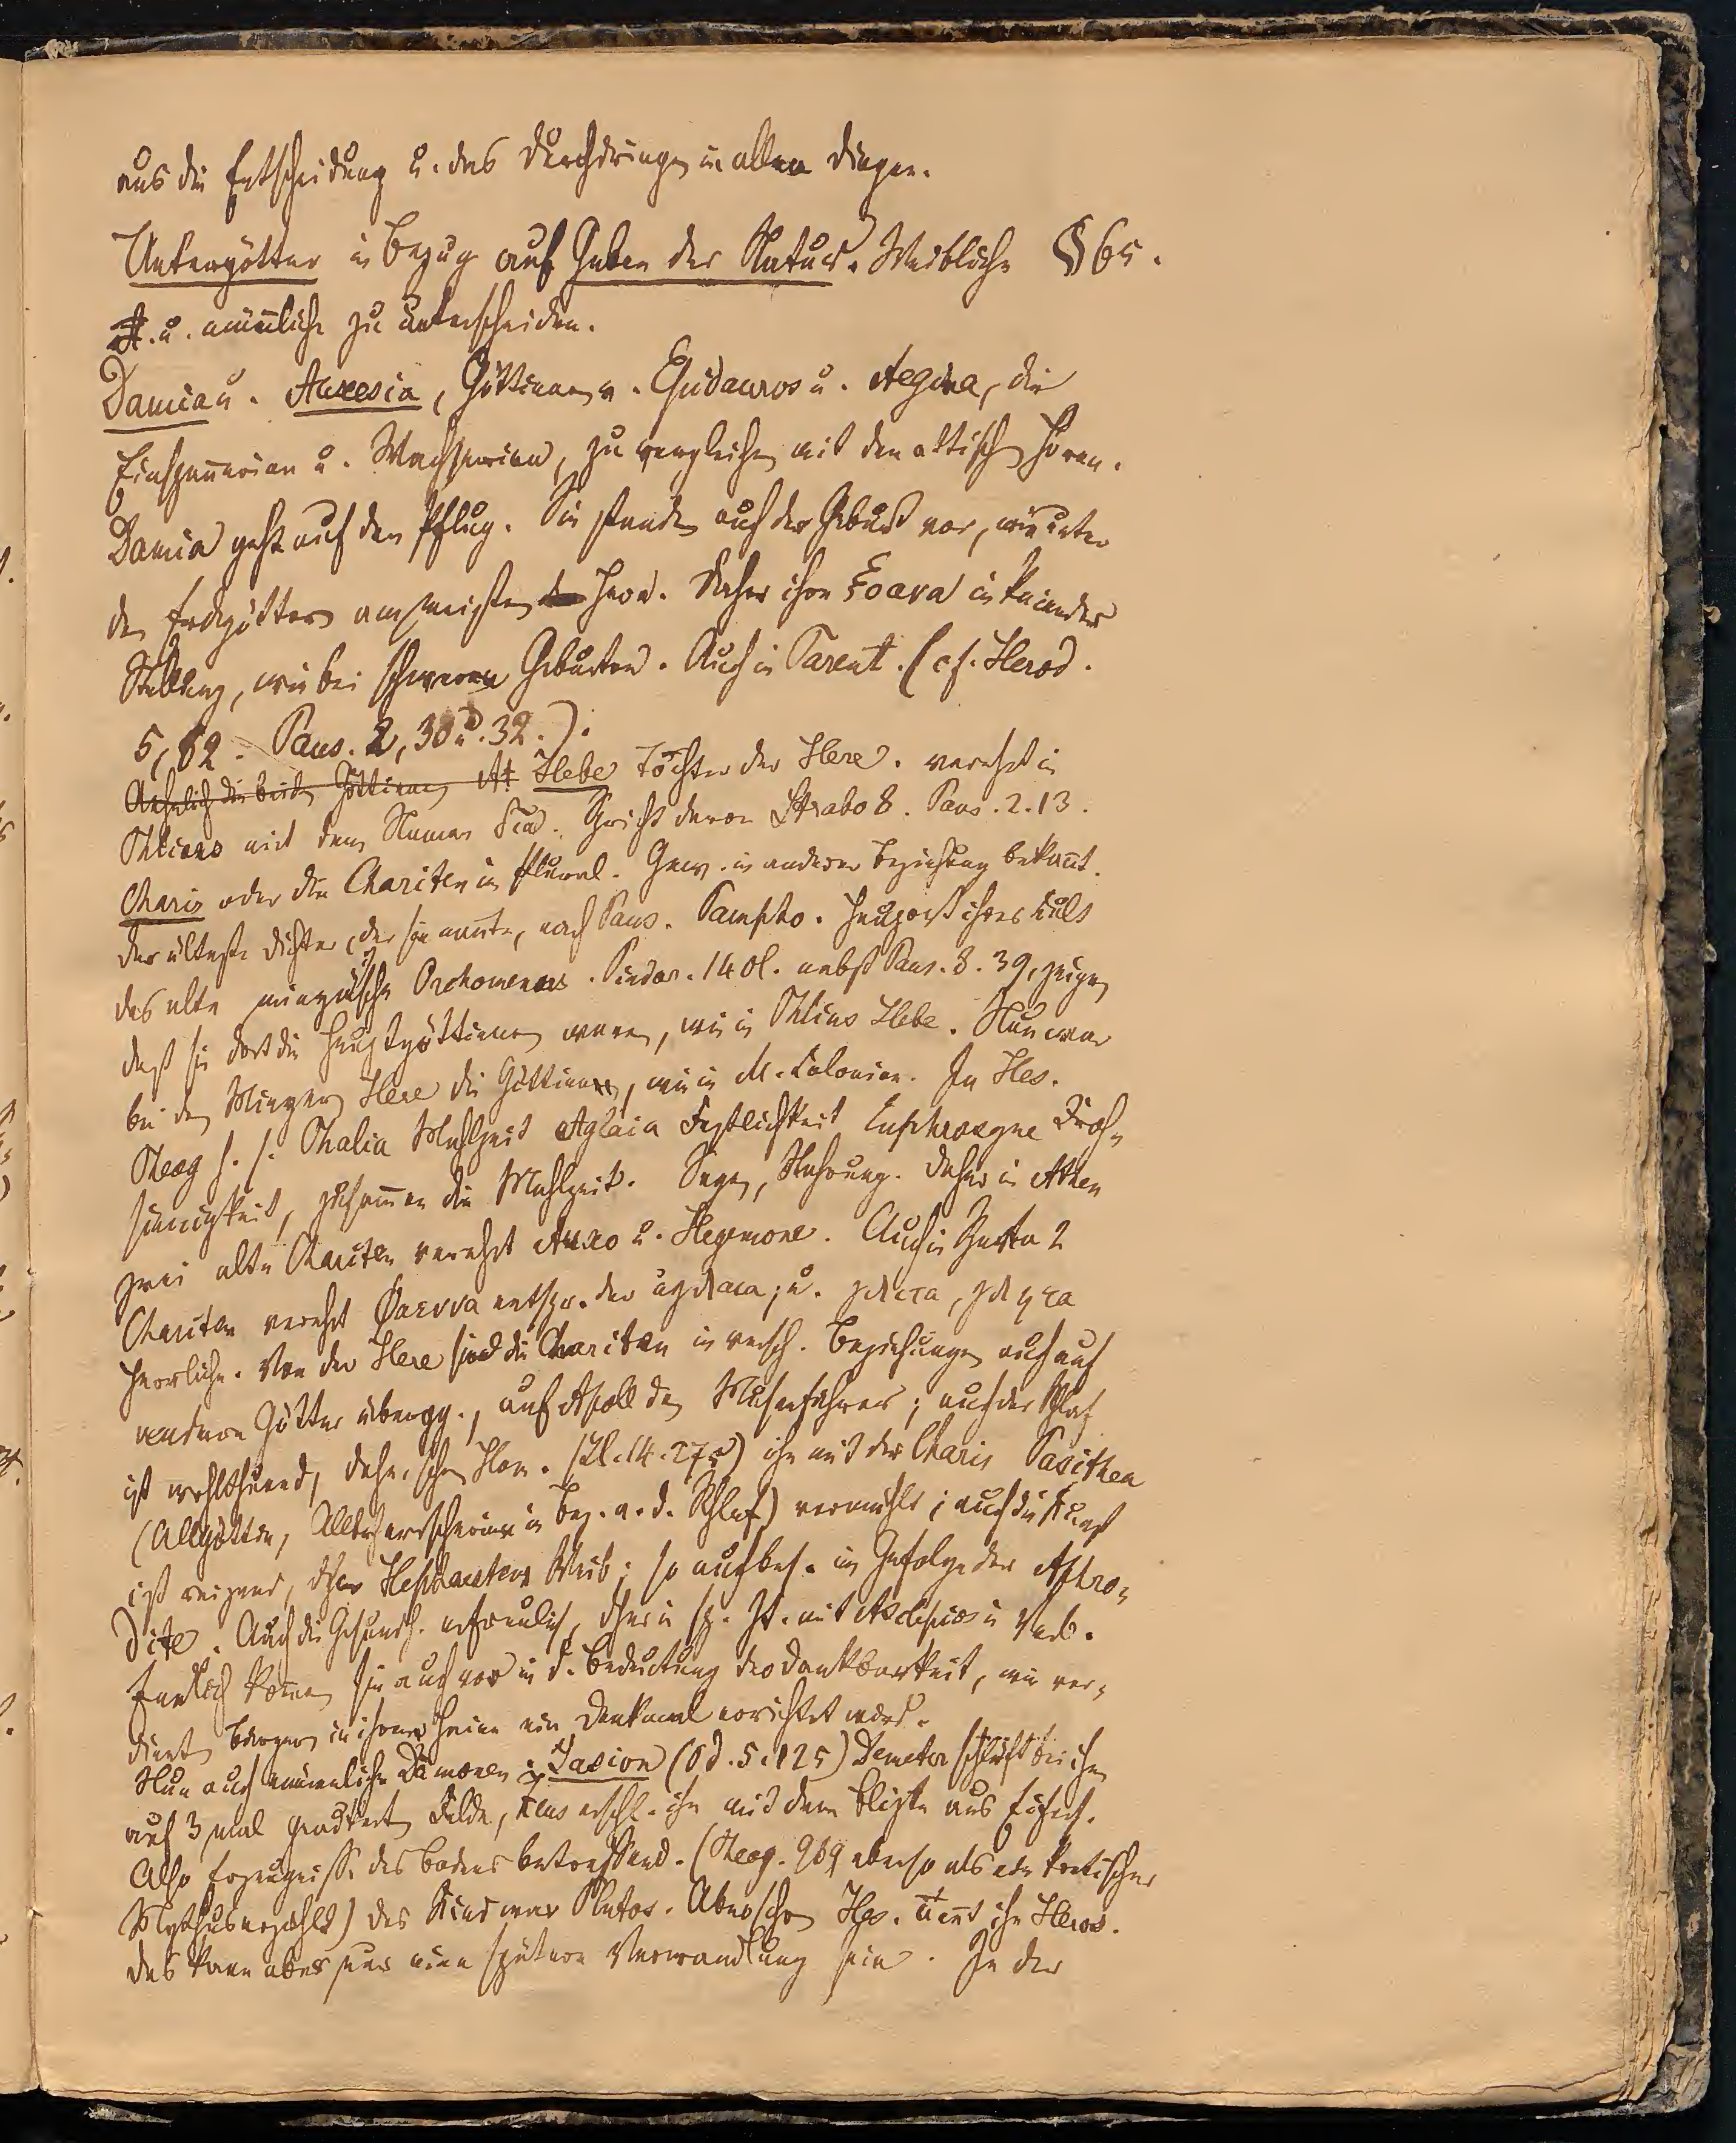 aus die Entscheidung u. das Durchdringen in allen Dingen.
Untergötter in Bezug auf Gaben der Natur. Weibliche § 65.
u. männliche zu unterscheiden.
Damia u. Auxesia, Göttinnen v. Epidauros u. Aegina, die
u. Wachserin, zu vergleichen mit den attischen Horen.
Damia geht auf den Pflug. Sie stunden auch der Geburt vor, wie unter
den Erdgöttern am meisten Hera. Daher ihre ξοανα in knieender
Stellung, wie bei schweren Geburten. Auch in Tarent. (cf. Herod.
5, 82. Paus. 2, 30 u. 32.).
Aehnlich die beiden Göttinnen At Hebe Tochter der Here. verehrt in
Phlious mit dem Namen Dia. Spricht davon Strabo 8. Paus. 2. 13.
Charis oder die Chariten im Plural. Gew. in anderer Beziehung bekannt.
Der älteste Dichter, der sie nannte, nach Paus. Pampho. Hauptort ihres Kults
das alte minyeische Orchomenos. Pindar. 14 Ol. nebst Paus. 8. 39, zeigen
daß sie dort die Hauptgöttinnen waren, wie in Phlius Hebe. Nun war
bei den Minyern Here die Göttinn, wie in M. Colonien. In Hes.
Theog h. s. Thalia Mahlzeit Aglaia Festlichkeit Euphrosyne Froh-
sinnigkeit, zusammen die Mahlzeit. Segen, Nahrung. Daher in Athen
zwei alte Chariten verehrt Auxo u. Hegemone. Auch in Sparta 2
Chariten verehrt Φαεννα entspr. der αγλαια; u. κλειτα, κλητα
herrliche. Von der Here sind die Chariten in versch. Beziehungen auch auf
andere Götter übergg., auf Apoll den Musenführer; auch der Schlaf
ist wohlthuend, daher schon Hom. (Il. 14. 275) ihn mit der Charis Pasithea
(Allgöttin, Allbeherrscherin in Bez. a. d. Schlaf) vermählt; auch die Kunst
ist reizend, daher Hephaestos Weib; so auch bes. im Gefolge der Aphro-
dite. Auch die Gesundh. erfreulich, daher in sp. Zt. mit Asclepios in Verb.
Endlich kommen sie auch vor in d. Bedeutung der Dankbarkeit, wie ver-
dienten Bürgern in ihrem Haine ein Denkmal errichtet ward.
Nun auch männliche Dämonen: Jasion (Od. 5. 125) Demeter schläft bei ihm
auf 3 mal geackert Felde, Zeus erschl. ihn mit dem Blitze aus Eifers.
Also Erzeugnisse des Bodens betreffend. (Theog. 969 ebenso als ein kretischer
Mythus erzählt) das Kind war Plutos. Aber schon Hes. nennt ihn Heros.
das kann aber nur eine spätere Verwandlung sein. In der